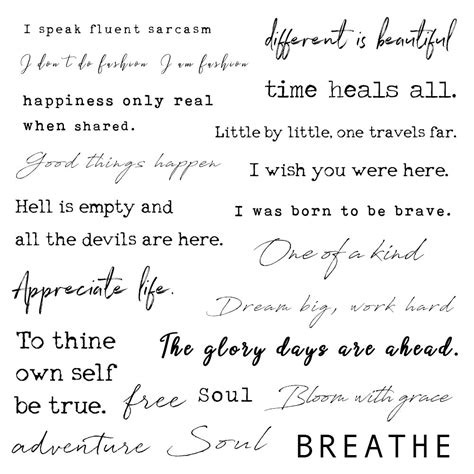 I speak fluent sarcasm
different is beautiful
I don't do fashion I am fashion
time heals all.
happiness only real
when shared.
Little by little, one travels far.
Good things happen
I wish you were here.
Hell is empty and
all the devils are here.
I was born to be brave.
One of a kind
Appreciate life.
Dream big, work hard
To thine
own self
be true.
The glory days are ahead.
free
Soul
Bloom with grace
adventure
Soul
BREATHE